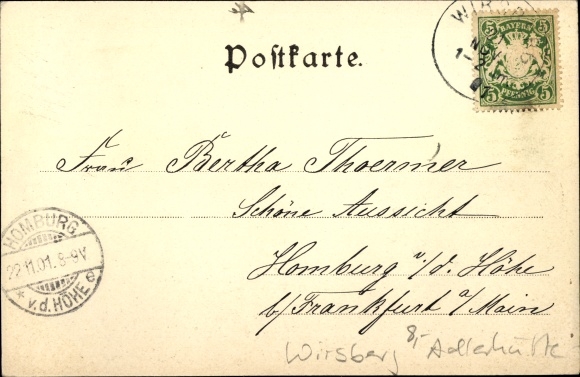 Postkarte.
BAYERN
5 5
PFENNIG
5 5
Frau Bertha Thoermer
Schöne Aussicht
Homburg v./d. Höhe
b/Frankfurt a/Main
HOMBURG
22.11.01. 8-9V
* v.d. HÖHE e
Wirsberg 8,- Adlerhütte